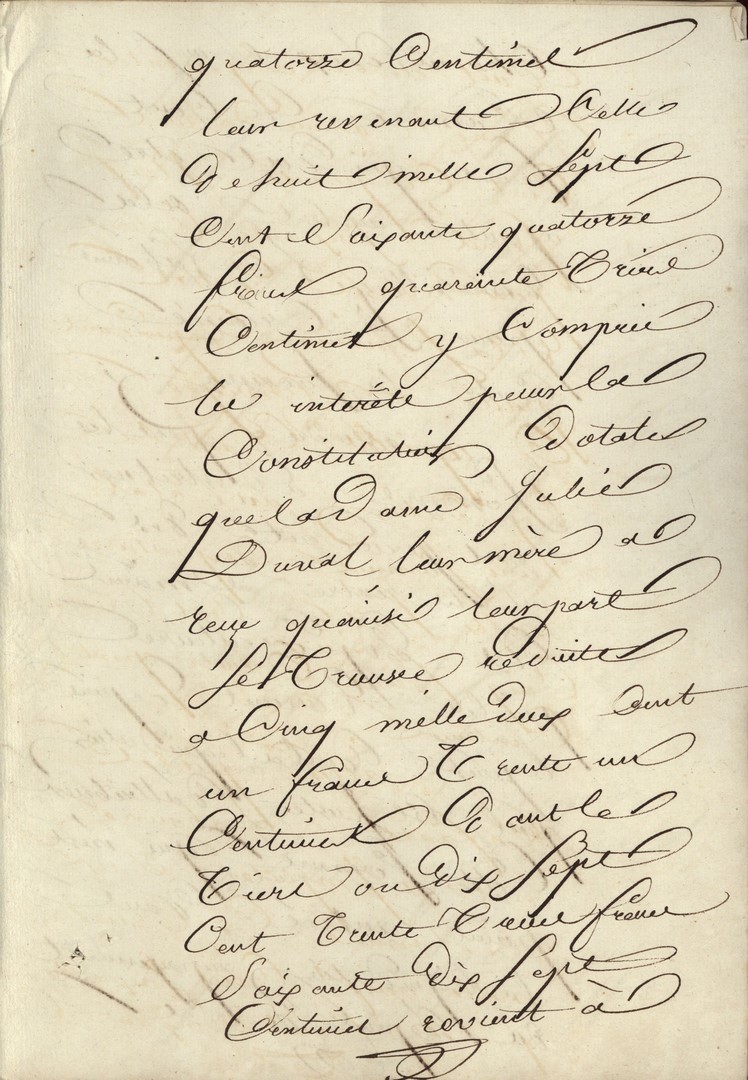 quatorze Centimes
leur revenant Celle
De huit mille Sept
Cent Soixante quatorze
francs quarante Trois
Centimes y Compris
les interêts pour la
Constitution Dotale
que la Dame Julie
Duval leur mère a
reçu quainsi leur part
Se Trouve réduite
a Cinq mille Deux Cent
un francs Trente un
Centimes Dont le
Tiers ou Dix Sept
Cent Trente Trois francs
Soixante Dix Sept
Centimes revient à